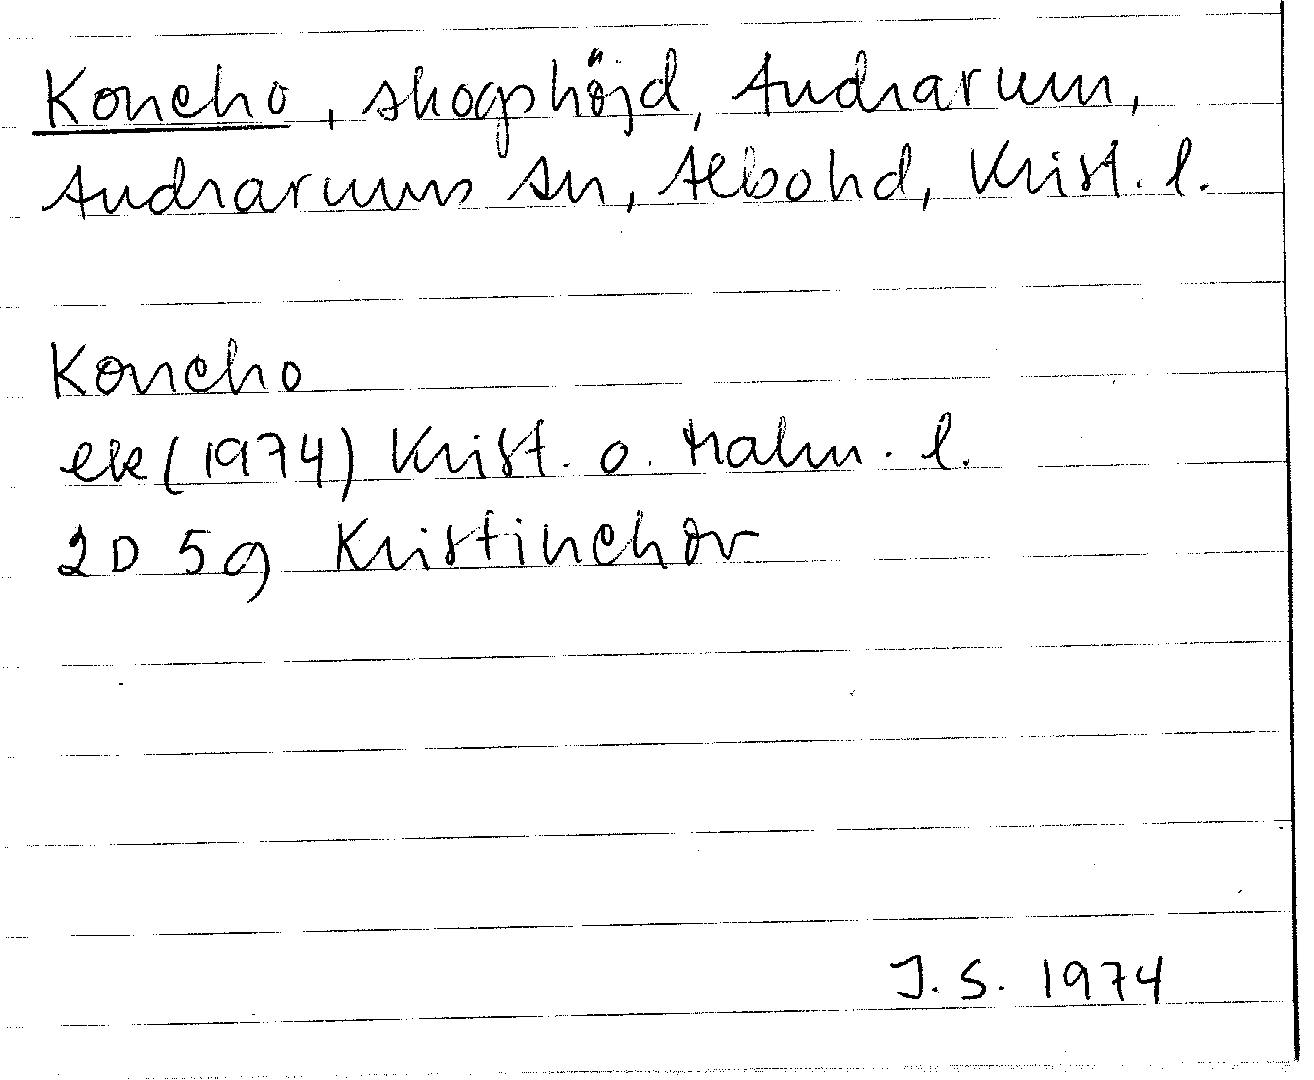 Koneho, skogshöjd, Andrarum,
Andrarums sn, Albo hd, Krist. l.
Koneho
ek (1974) Krist. o. Malm. l.
2D 5g Kristinehov
J. S. 1974